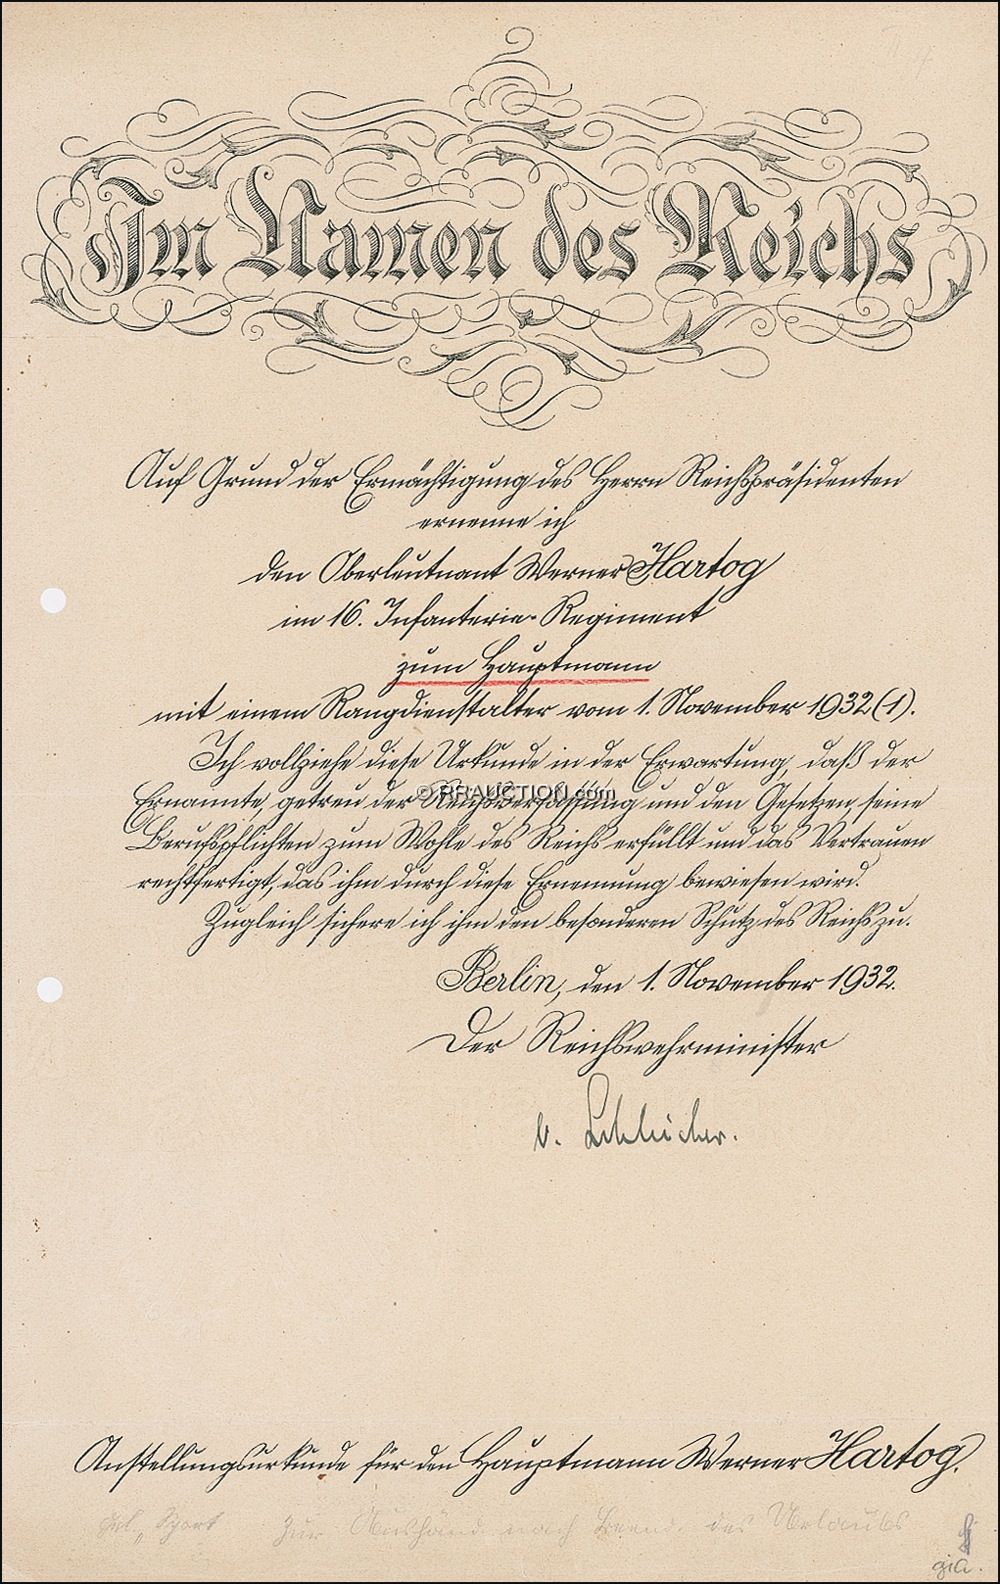 Im Namen des Reichs
Auf Grund der Ermächtigung des Herrn Reichspräsidenten
ernenne ich
den Oberleutnant Werner Hartog
im 16. Infanterie-Regiment
zum Hauptmann
mit einem Rangdienstalter vom 1. November 1932 (1).
Ich vollziehe diese Urkunde in der Erwartung, daß der
Ernannte, getreu der Reichsverfassung und den Gesetzen, seine
© RRAUCTION.com
Berufspflichten zum Wohle des Reichs erfüllt und das Vertrauen
rechtfertigt, das ihm durch diese Ernennung bewiesen wird.
Zugleich sichere ich ihm den besonderen Schutz des Reichs zu.
Berlin, den 1. November 1932.
Der Reichswehrminister
v. Schleicher.
Anstellungsurkunde für den Hauptmann Werner Hartog.
Zur nach des Urlaubs